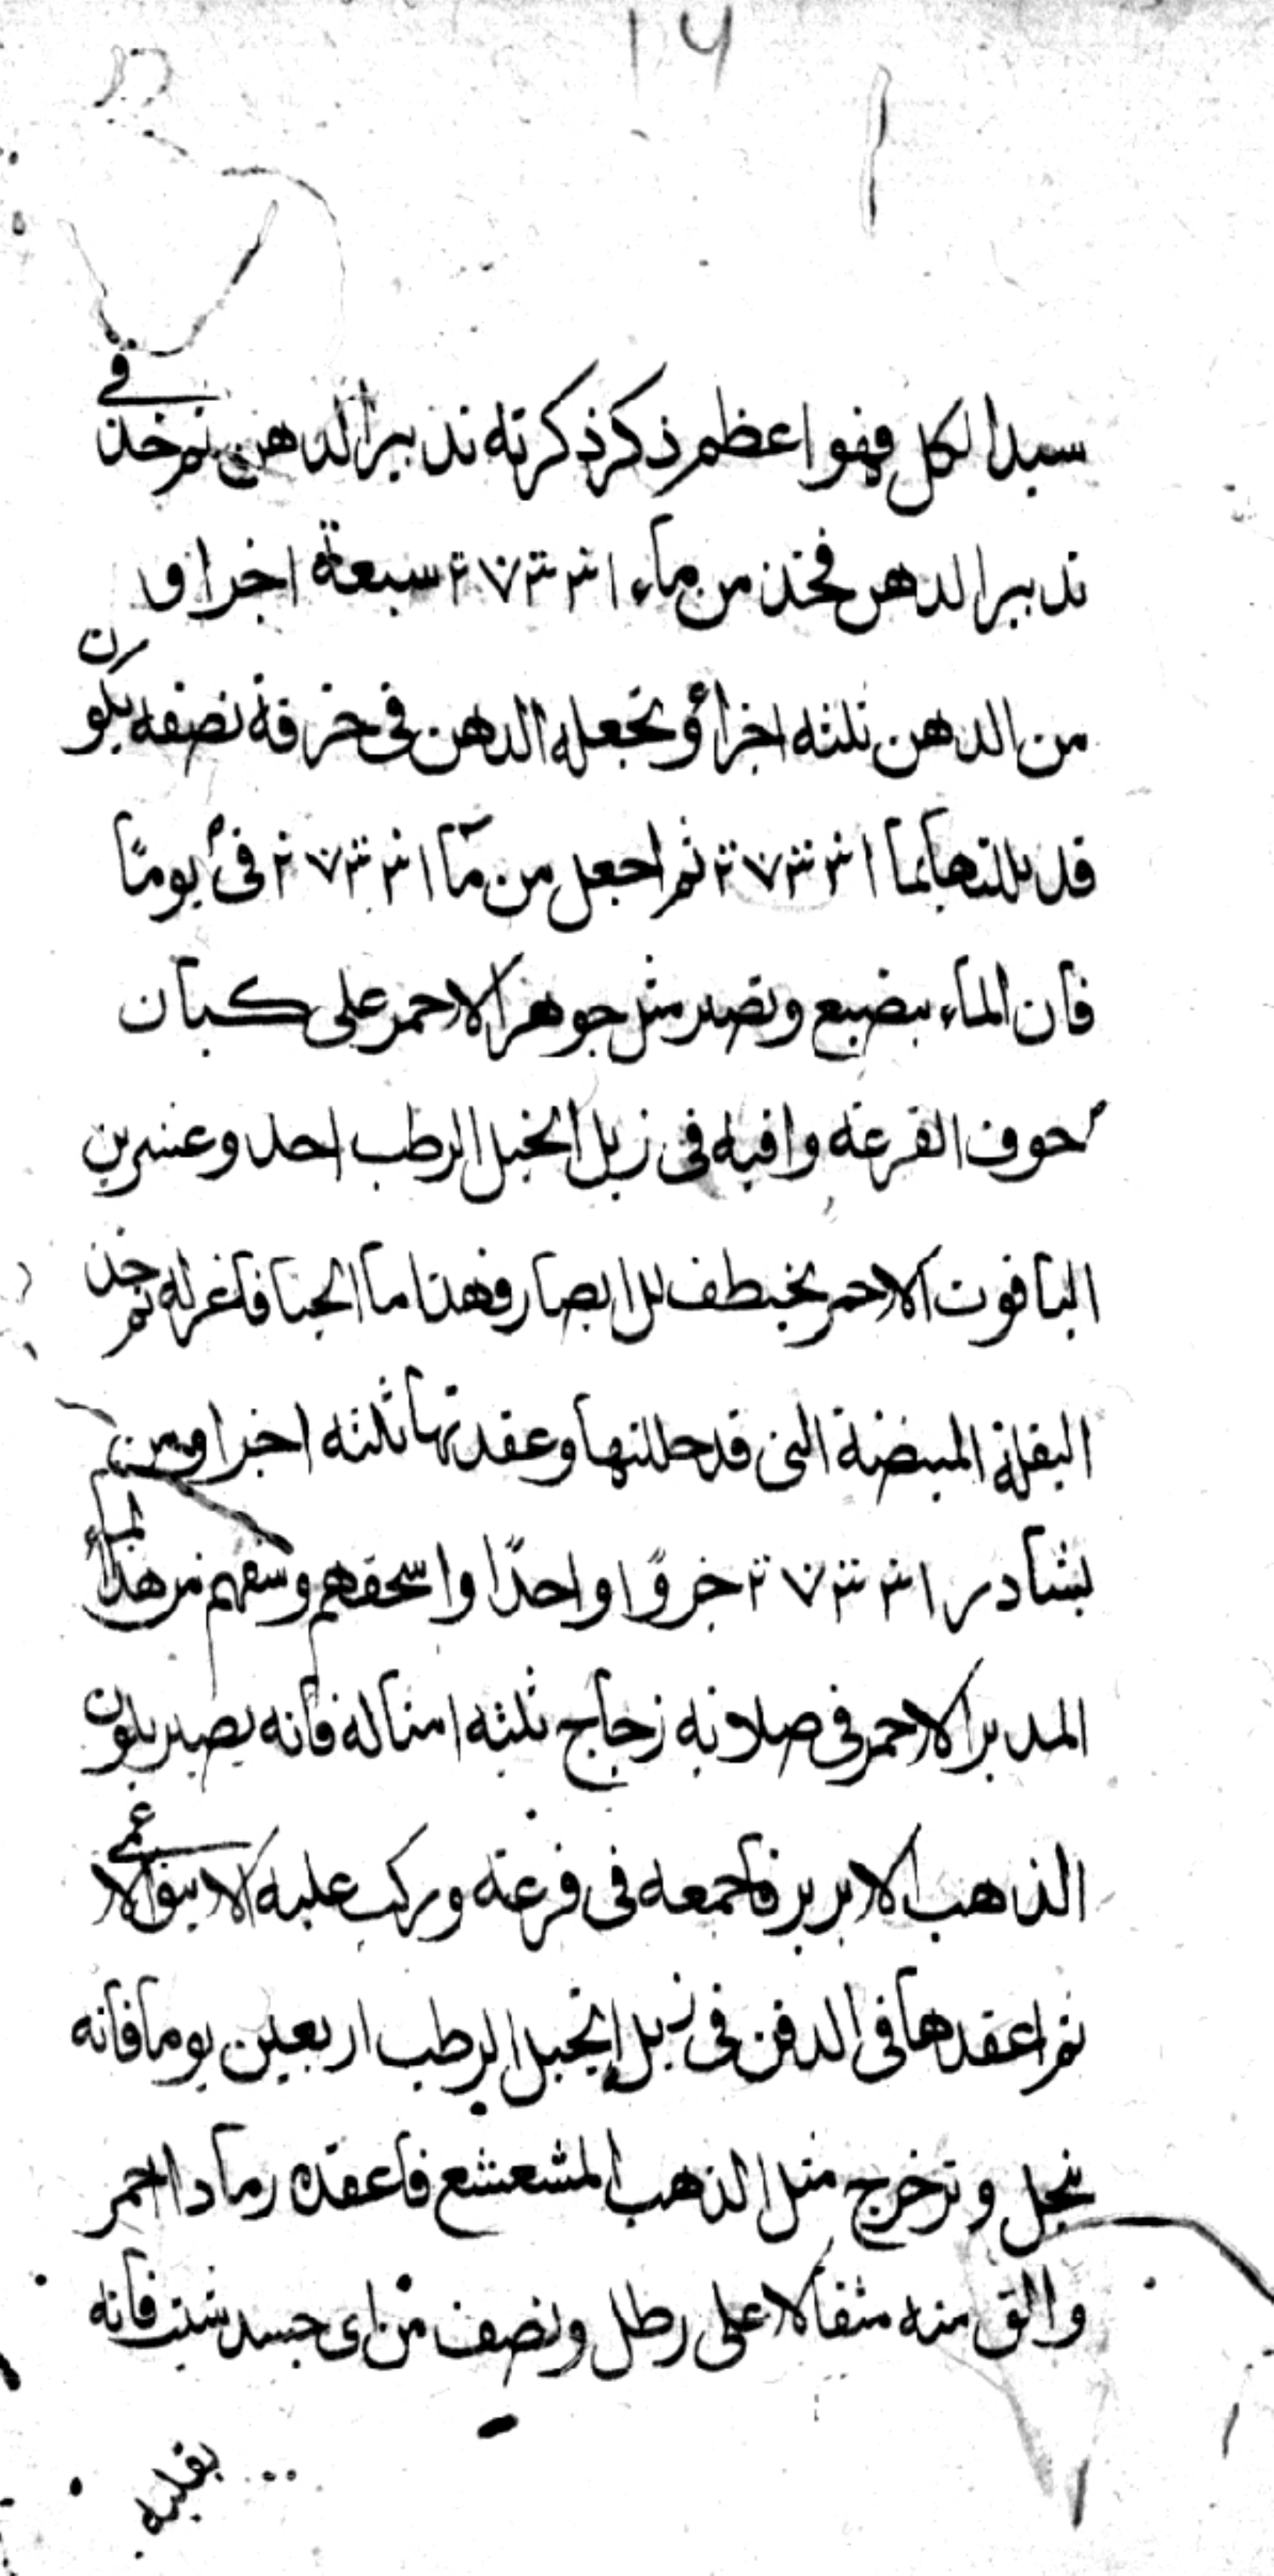 ١٦
سيد الكل فهو اعظم ذكر ذكرته تدبير الدهن ثم خذ في
تدبير الدهن فخذ من ماء سبعة اجزاء و
من الدهن ثلثه اجزا وتجعل الدهن في خرقة نصفه يكون
قد بللتها بما ثم اجعل من مآ في يومًا
فان الماء يصبع وتصير مثل جوهر الاحمر على كيان
جوف القرعة وافيه في زبل الخيل الرطب احد وعشرين
الياقوت الاحمر يخطف للابصار فهذا ما الحيا فاعزله ثم خذ
البقلة المبيضة التي قد حللتها وعقدتها ثلثه اجزا ومن
نشادر جزوًا واحدًا واسحقهم وسقهم من هذا الماء
المدبر الاحمر في صلايه زجاج ثلثه امثاله فانه يصير بلون
الذهب الابريز فاجمعه في قرعة وركب عليه الانبيق الاعمى
ثم اعقدها في الدفن في زبل الخيل الرطب اربعين يوما فانه
ينحل وتخرج مثل الذهب المشعشع فاعقده رمادا احمر
والق منه مثقالا على رطل ونصف من اى جسد شئت فانه
يقلبه